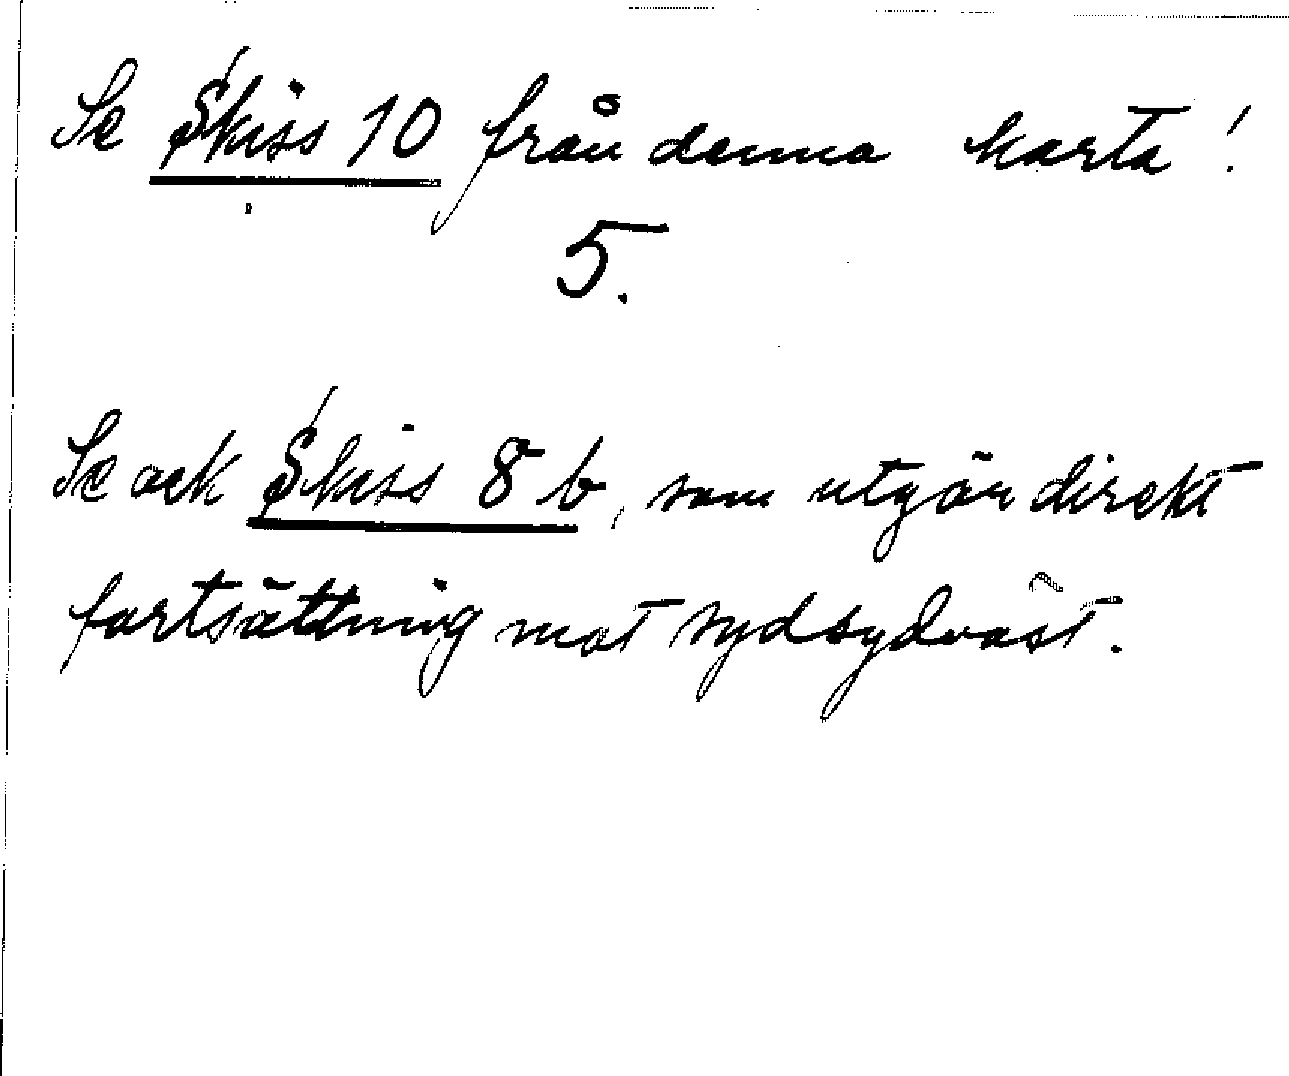 Se Skiss 10 från denna karta!
5.
Se ock Skiss 8 b, som utgör direkt
fortsättning mot sydsydväst.